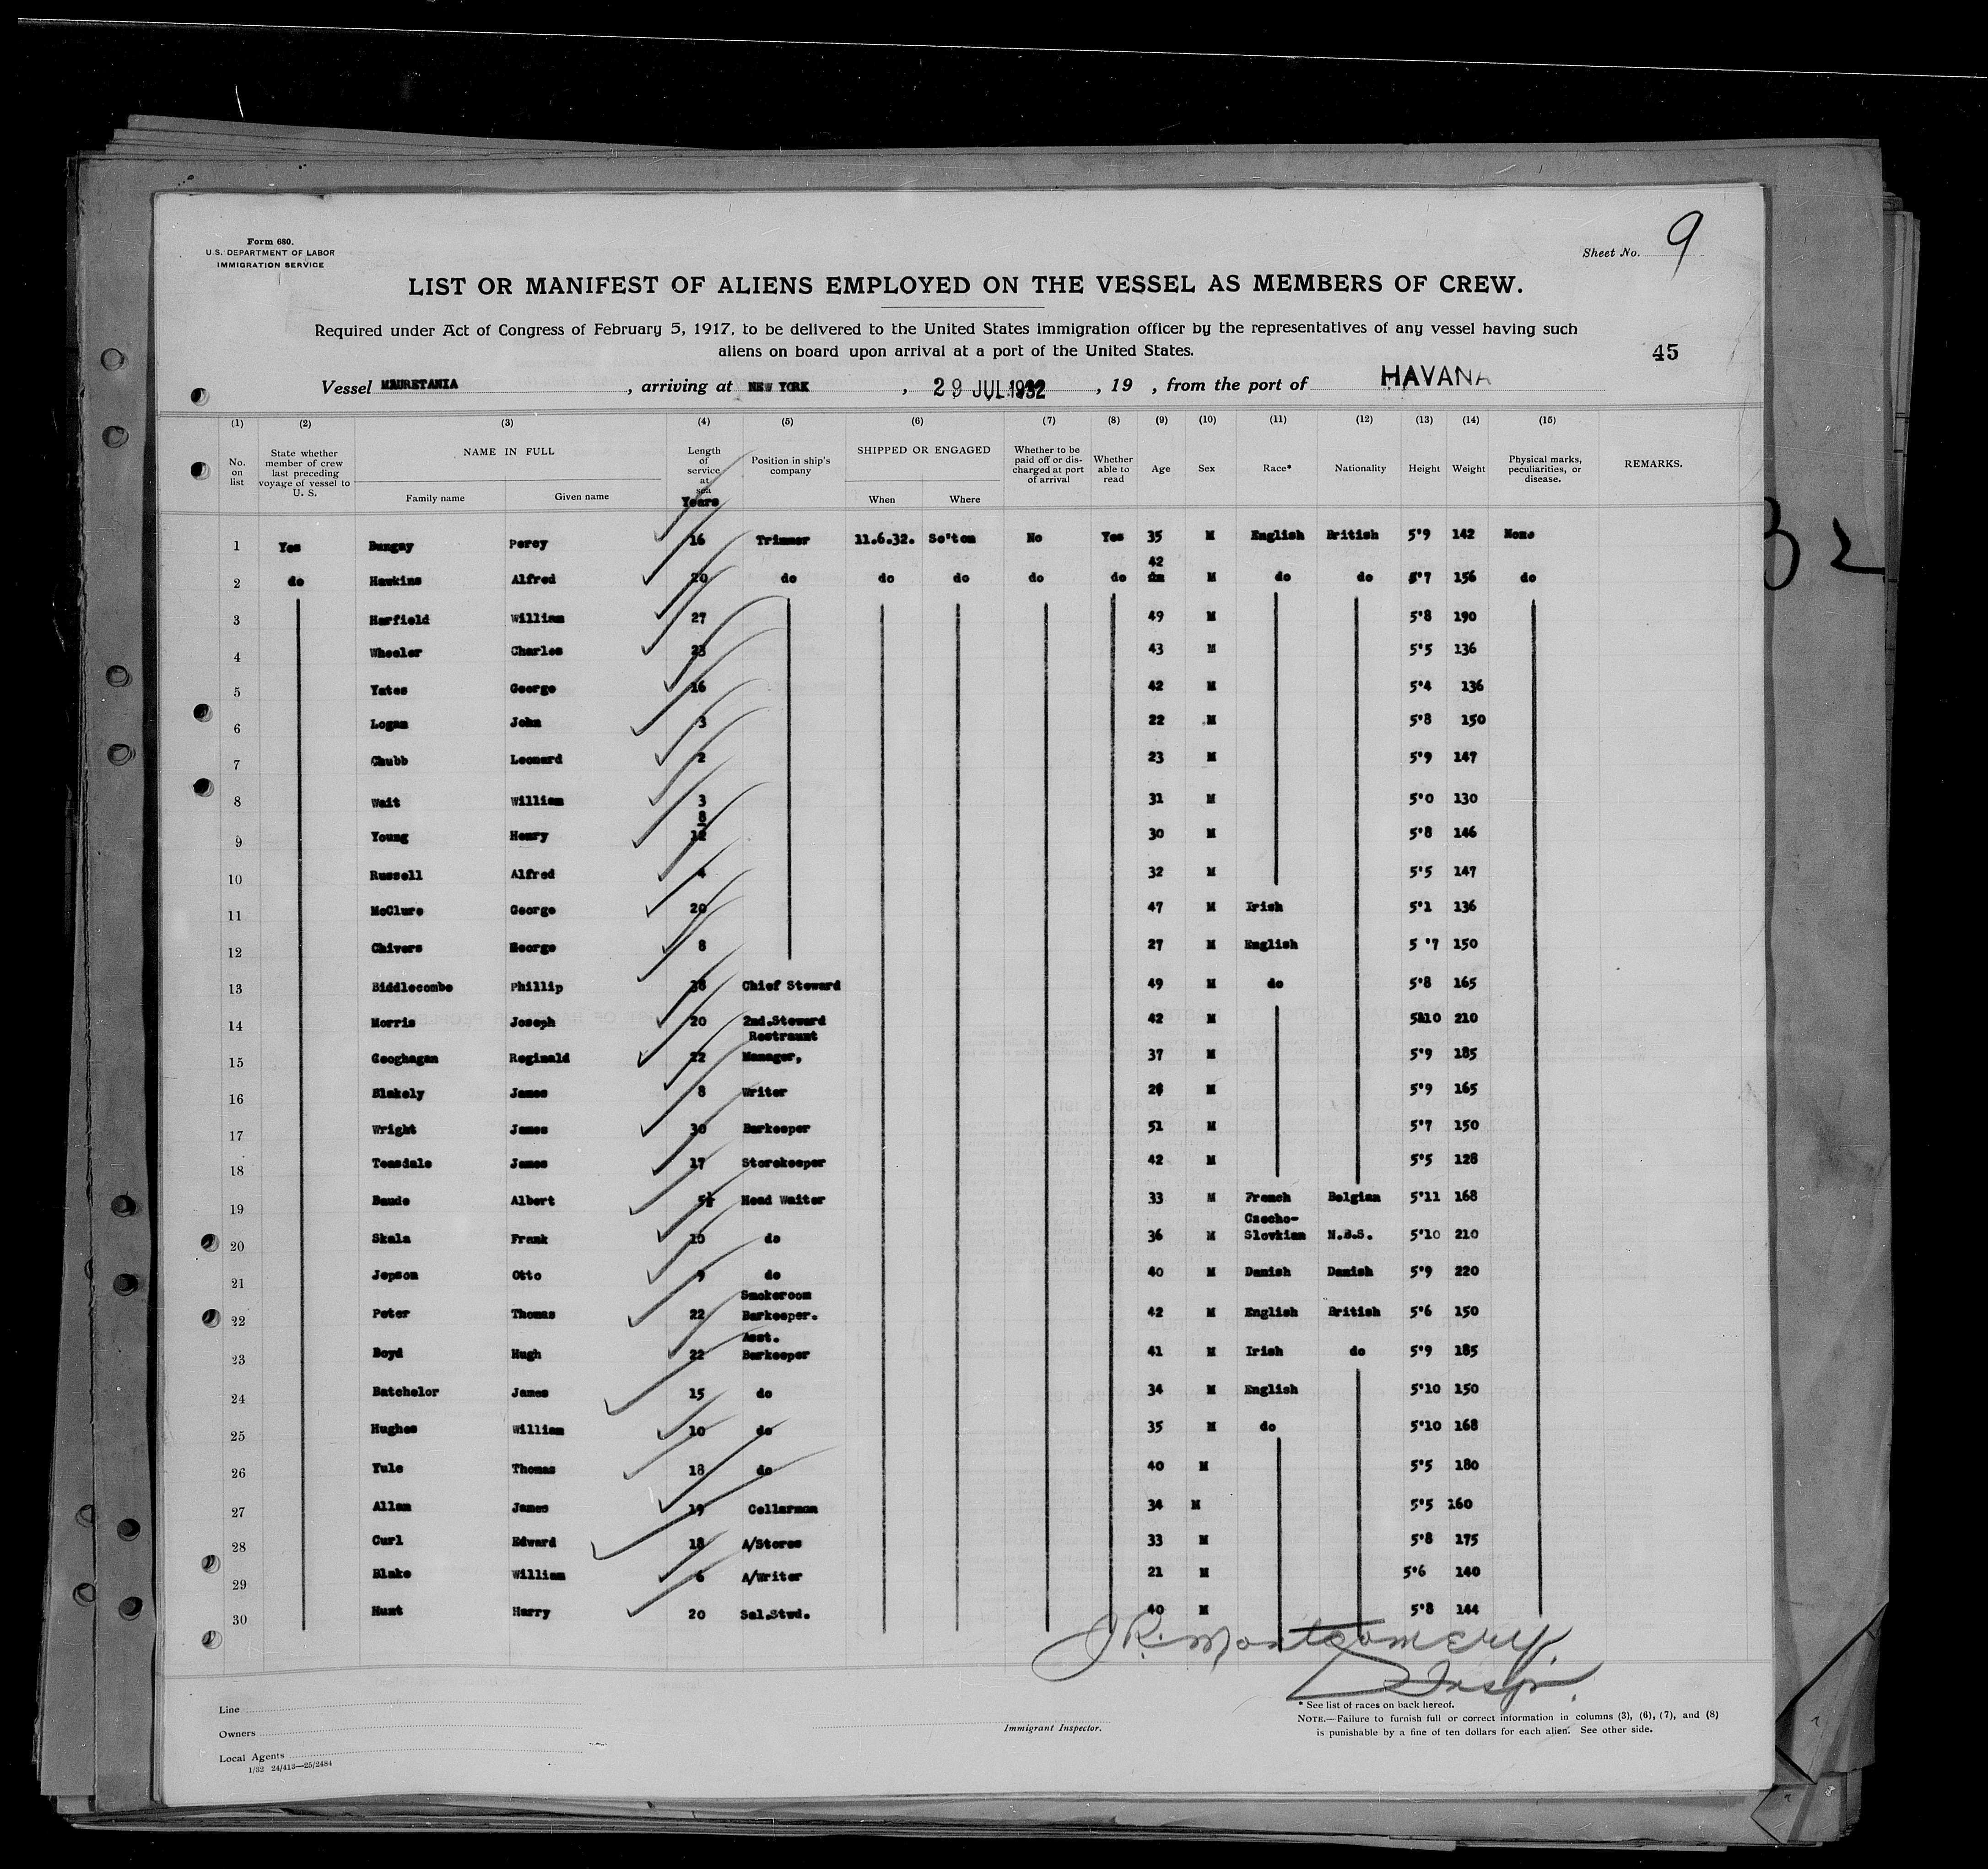 Form 680.
U.S. DEPARTMENT OF LABOR
IMMIGRATION SERVICE
Sheet No. 9
LIST OR MANIFEST OF ALIENS EMPLOYED ON THE VESSEL AS MEMBERS OF CREW.
Required under Act of Congress of February 5, 1917, to be delivered to the United States immigration officer by the representatives of any vessel having such
aliens on board upon arrival at a port of the United States.
45
Vessel MAURETANIA, arriving at NEW YORK, 29 JUL 1932, 19 , from the port of HAVANA
(1) (2) (3) (4) (5) (6) (7) (8) (9) (10) (11) (12) (13) (14) (15)
No. on list State whether member of crew last preceding voyage of vessel to U. S. NAME IN FULL Family name Given name Length of service at sea Years Position in ship's company SHIPPED OR ENGAGED When Where Whether to be paid off or discharged at port of arrival Whether able to read Age Sex Race* Nationality Height Weight Physical marks, peculiarities, or disease. REMARKS.
1 Yes Dungay Percy 16 Trimmer 11.6.32. So'ton No Yes 35 M English British 5'9 142 None
2 do Hawkins Alfred 20 do do do do do 42 M do do 5'7 156 do
3 Harfield William 27 49 M 5'8 190
4 Wheeler Charles 23 43 M 5'5 136
5 Yates George 16 42 M 5'4 136
6 Logan John 3 22 M 5'8 150
7 Chubb Leonard 2 23 M 5'9 147
8 Wait William 3 31 M 5'0 130
9 Young Henry 8/12 30 M 5'8 146
10 Russell Alfred 4 32 M 5'5 147
11 McClure George 20 47 M Irish 5'1 136
12 Chivers George 8 27 M English 5 '7 150
13 Biddlecombe Phillip 38 Chief Steward 49 M do 5'8 165
14 Morris Joseph 20 2nd.Steward 42 M 5'10 210
15 Geoghagan Reginald 22 Restraunt Manager, 37 M 5'9 185
16 Blakely James 8 Writer 28 M 5'9 165
17 Wright James 30 Barkeeper 51 M 5'7 150
18 Teasdale James 17 Storekeeper 42 M 5'5 128
19 Baude Albert 5½ Head Waiter 33 M French Belgian 5'11 168
20 Skala Frank 10 do 36 M Czecho-Slovkian N.S.S. 5'10 210
21 Jepson Otto 9 do 40 M Danish Danish 5'9 220
22 Peter Thomas 22 Smokeroom Barkeeper. 42 M English British 5'6 150
23 Boyd Hugh 22 Asst. Barkeeper 41 M Irish do 5'9 185
24 Batchelor James 15 do 34 M English 5'10 150
25 Hughes William 10 do 35 M do 5'10 168
26 Yule Thomas 18 do 40 M 5'5 180
27 Allan James 19 Cellarman 34 M 5'5 160
28 Curl Edward 18 A/Stores 33 M 5'8 175
29 Blake William 6 A/Writer 21 M 5'6 140
30 Hunt Harry 20 Sal.Stwd. 40 M 5'8 144
J R. Montgomery
Insp.
Line
Owners
Local Agents
1/32 24/413—25/2484
Immigrant Inspector.
* See list of races on back hereof.
NOTE.—Failure to furnish full or correct information in columns (3), (6), (7), and (8)
is punishable by a fine of ten dollars for each alien. See other side.